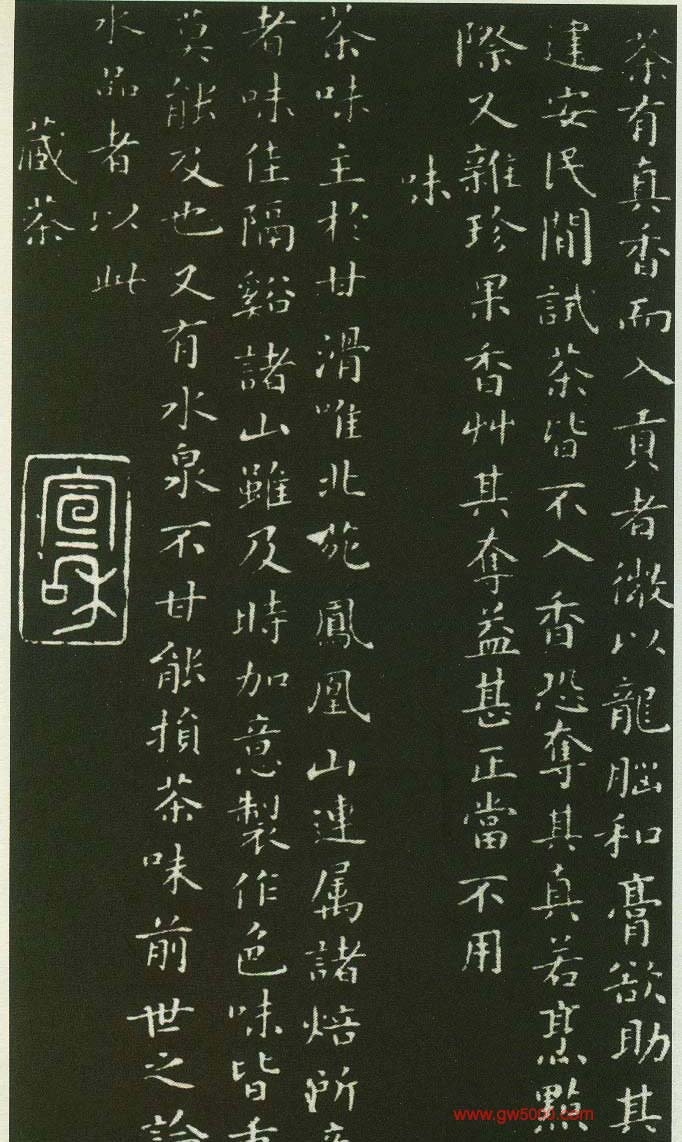 茶有真香而入貢者微以龍腦和膏欲助其
建安民間試茶皆不入香恐奪其真若烹點
際又雜珍果香艸其奪益甚正當不用
味
茶味主於甘滑唯北苑鳳凰山連属諸焙所
者味佳隔谿諸山雖及時加意製作色味皆
莫能及也又有水泉不甘能損茶味前世之論
水品者以此
藏茶
宣和
www.gw5000.com